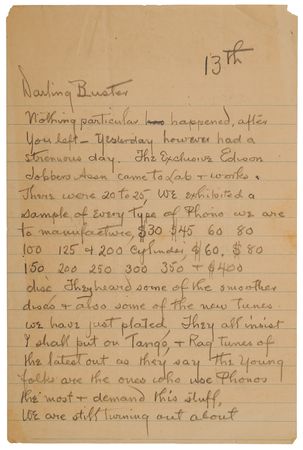 13th
Darling Buster
Nothing particular has happened, after
You left – Yesterday however had a
strenuous day. The Exclusive Edison
Jobbers Assn came to Lab + works.
There were 20 to 25, WE exhibited a
sample of Every Type of Phono we are
to manufacture, $30 $45 60 80
100 125 + 200 Cylinder, $60, $80
150 200 250 300 350 + $400
disc They heard some of the smoother
discs + also some of the new tunes
we have just plated, They all insist
I shall put on Tango, + Rag tunes of
the latest out as they say the Young
folks are the ones who use Phonos
the most + demand this stuff,
WE are still turning out about